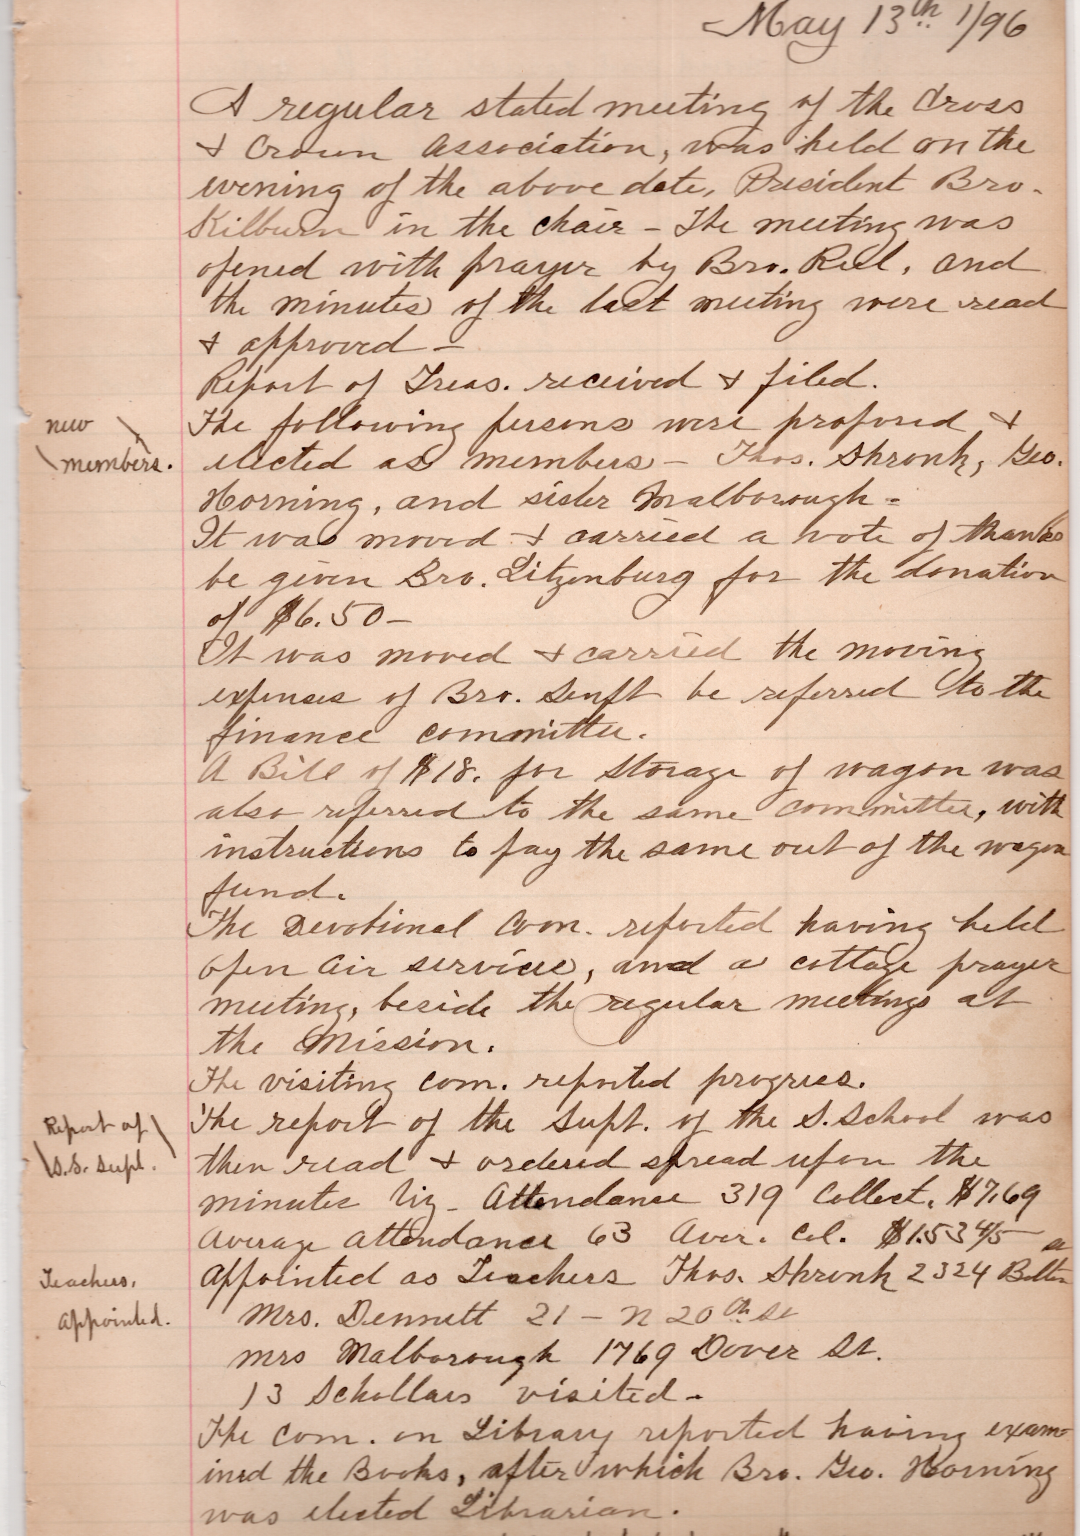 May 13th 1/96
A regular stated meeting of the Cross
& Crown Association, was held on the
evening of the above date, President Bro.
Kilburn in the chair - The meeting was
opened with prayer by Bro. Reel, and
the minutes of the last meeting were read
& approved -
Report of Treas. received & filed.
The following persons were proposed &
new
members.
elected as members - Thos. Shronk, Geo.
Horning, and sister Malborough -
It was moved & carried a vote of thanks
be given Bro. Litzenburg for the donation
of $6.50 -
It was moved & carried the moving
expenses of Bro. Senft be referred to the
finance committee.
A Bill of $18. for storage of wagon was
also referred to the same committee, with
instructions to pay the same out of the wagon
fund.
The Devotional Com. reported having held
open air service, and a cottage prayer
meeting, beside the regular meetings at
the Mission.
The visiting com. reported progress.
Report of
S.S. Supt.
The report of the Supt. of the S. School was
then read & ordered spread upon the
minutes viz - Attendance 319 Collect. $7.69
Average attendance 63 Aver. Col. $1.53 4/5
Teachers,
appointed.
Appointed as Teachers Thos. Shronk 2324
Mrs. Dennett 21 - N 20th St
Mrs Malborough 1769 Dover St.
13 Schollars visited -
The com. on Library reported having exam
ined the Books, after which Bro. Geo. Horning
was elected Librarian.